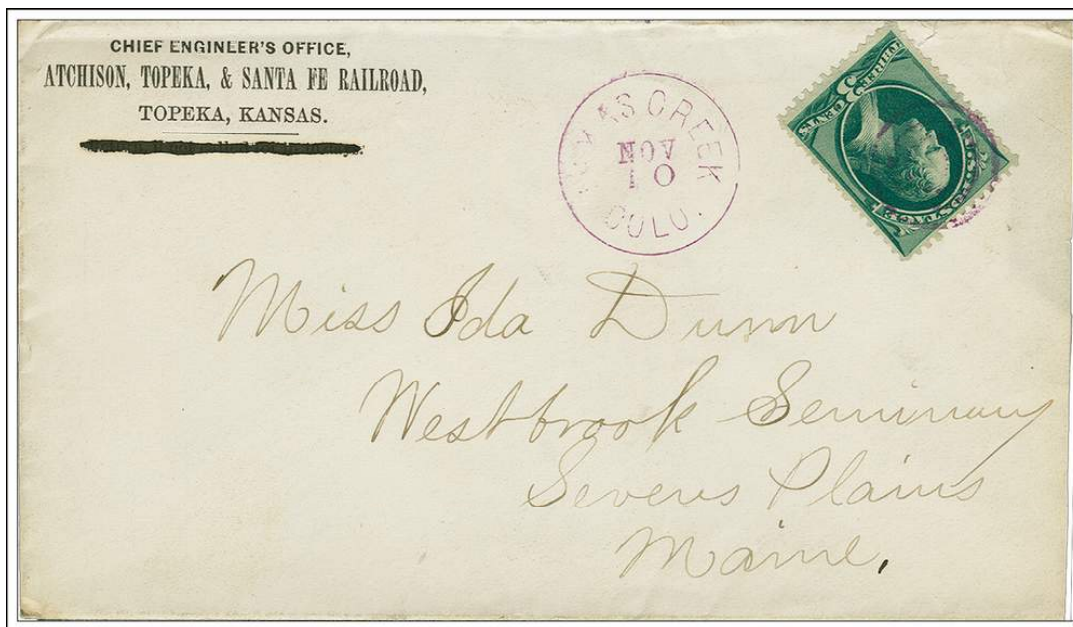 CHIEF ENGINEER'S OFFICE,
ATCHISON, TOPEKA, & SANTA FE RAILROAD,
TOPEKA, KANSAS.
TEXAS CREEK
NOV
10
COLO.
U.S. POSTAGE
3
THREE CENTS
Miss Ida Dunn
Westbrook Seminary
Severus Plains
Maine.